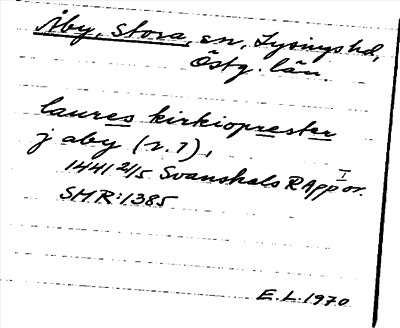 Åby, Stora, sn, Lysings hd,
Östg. län.
laures kirkioprester
j aby (r. 1),
1441 21/5 Svanshals RApp I or.
SMR: 1385
E.L. 1970